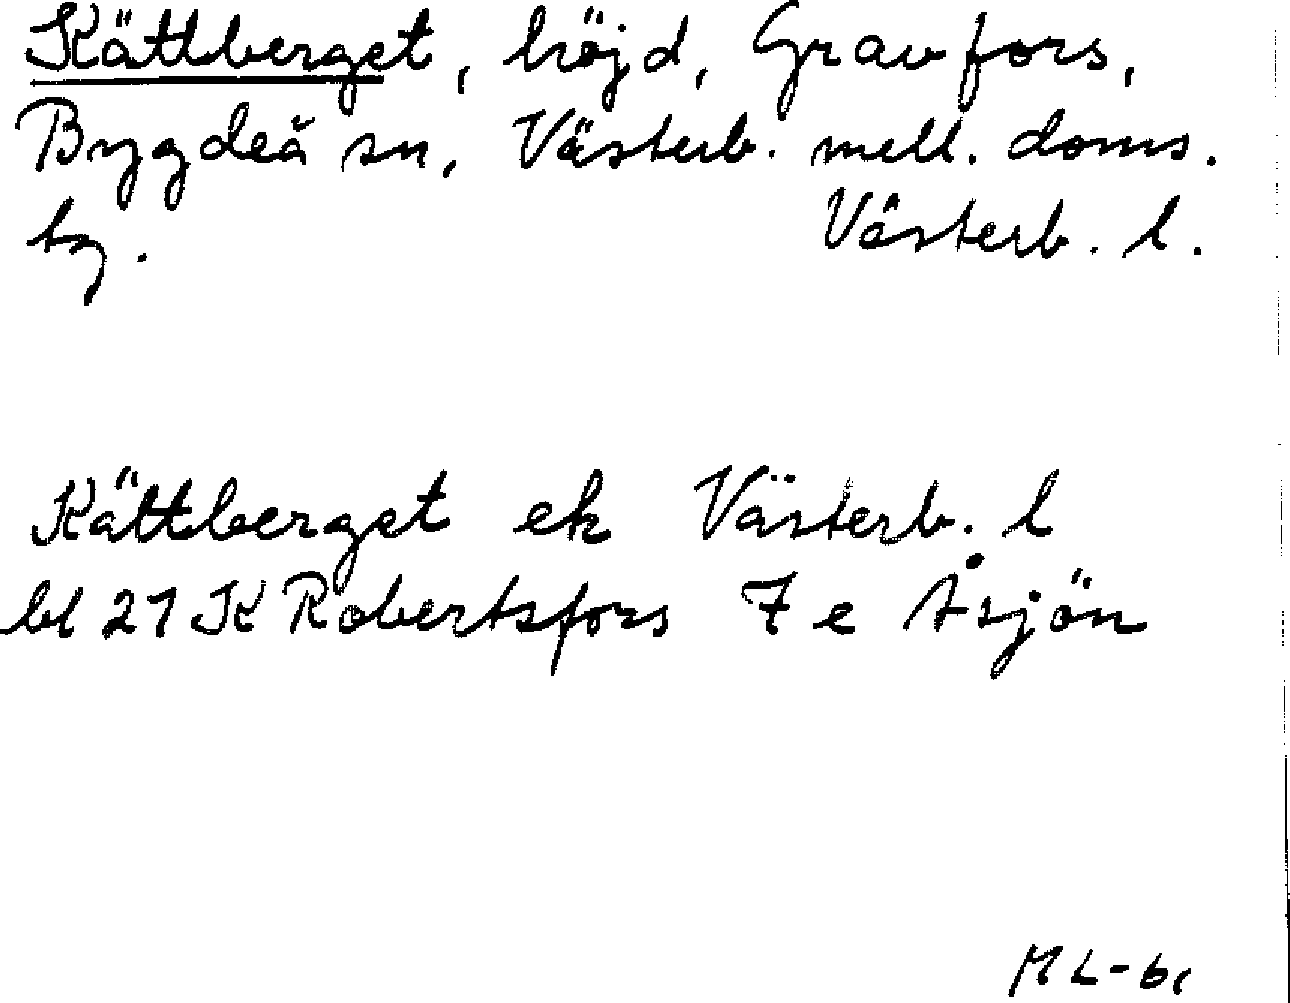 Kättberget, höjd, Gravfors,
Bygdeå sn, Västerb. mell. doms.
tg. Västerb. l.
Kättberget ek Västerb. l
bl 21 K Robertsfors 7 e Åsjön
ML-61